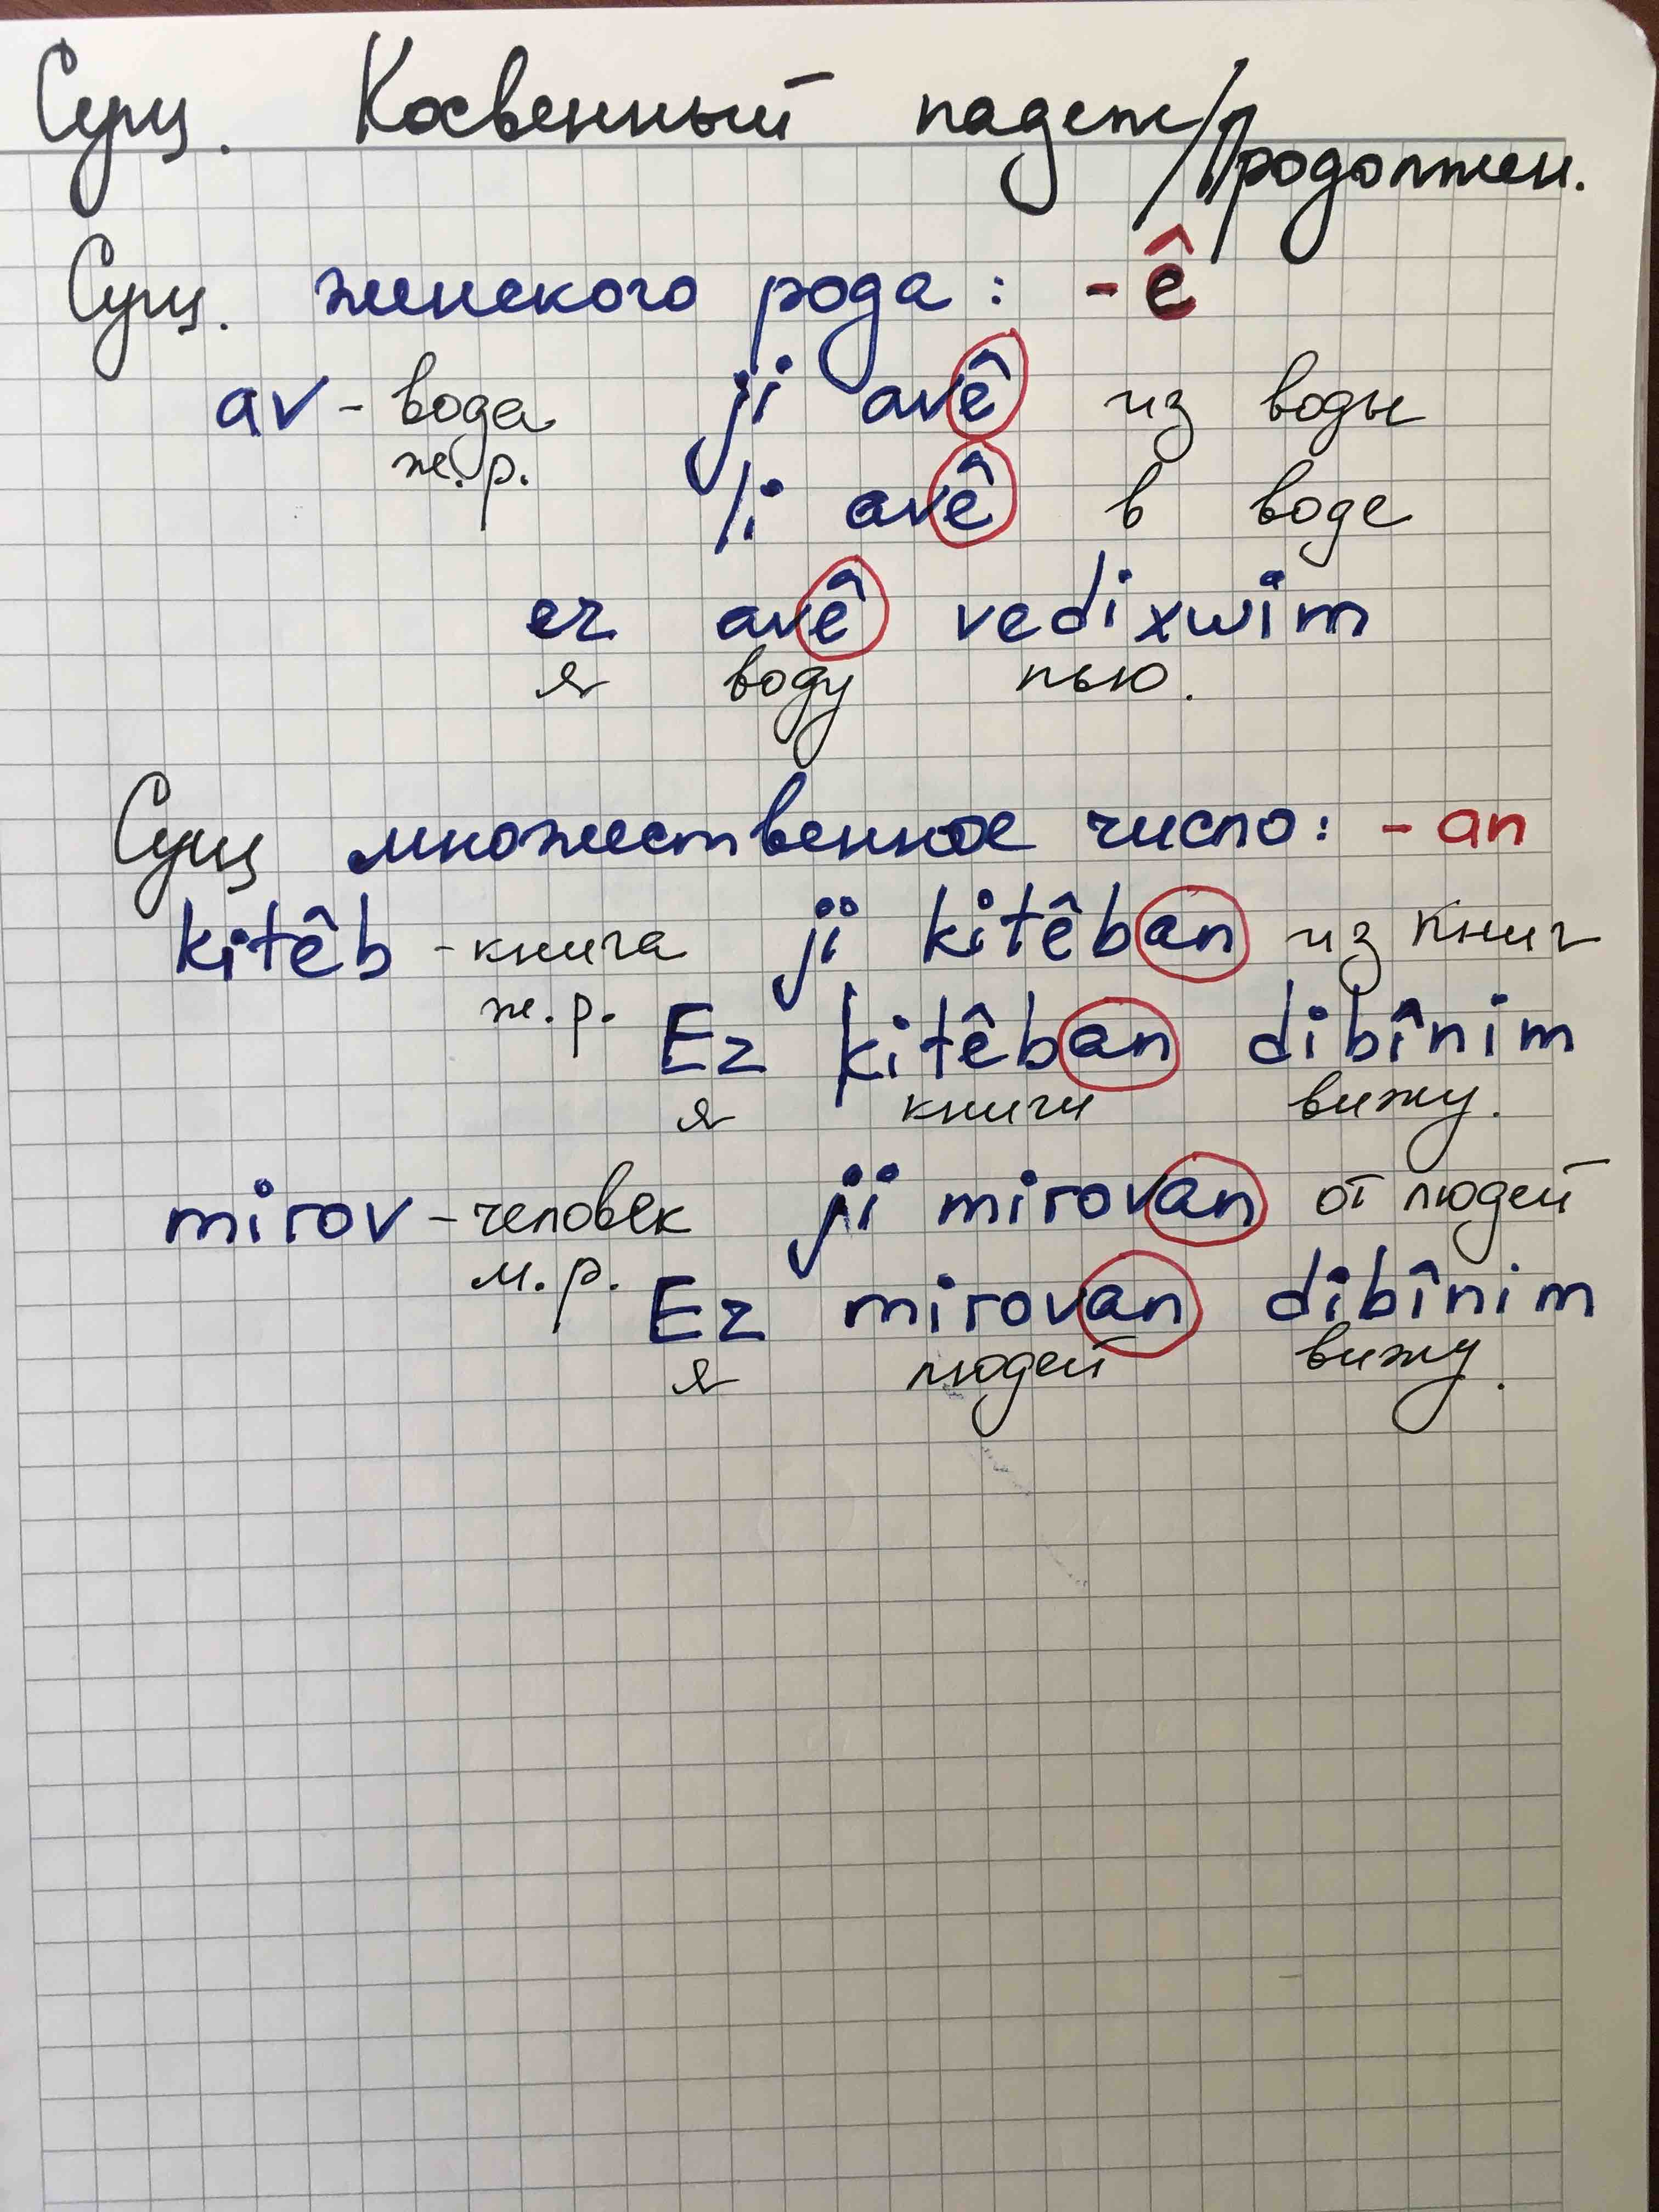 Сущ. Косвенный падеж/Продолжен.
Сущ. женского рода: -ê
av - вода ji avê из воды
ж.р.
li avê в воде
ez avê vedixwim
я воду пью.
Сущ множественное число: -an
kitêb - книга ji kitêban из книг
ж.р.
Ez kitêban dibînim
я книги вижу.
mirov - человек ji mirovan от людей
м.р.
Ez mirovan dibînim
я людей вижу.